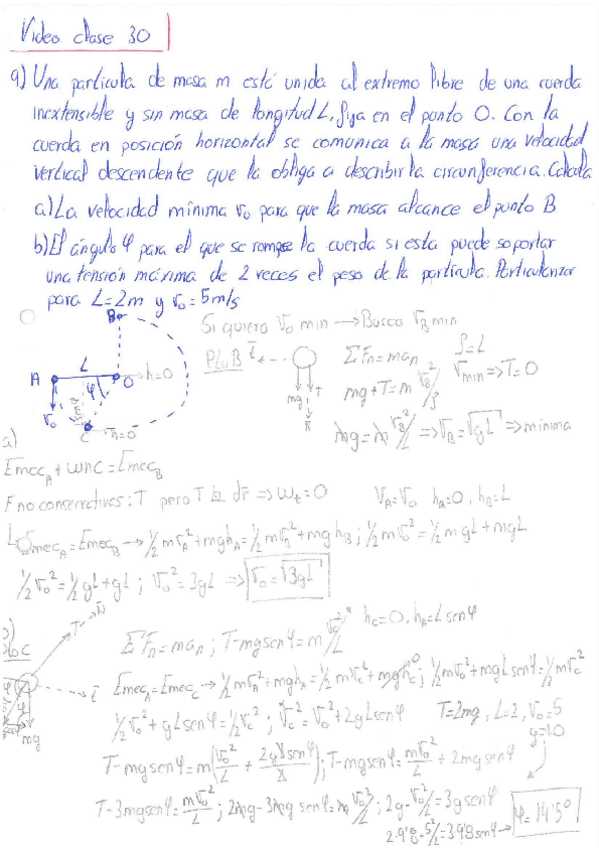 Video clase 30
9) Una partícula de masa m está unida al extremo libre de una cuerda
inextensible y sin masa de longitud L, fija en el punto O. Con la
cuerda en posición horizontal se comunica a la masa una velocidad
vertical descendente que la obliga a describir la circunferencia. Calcula
a) La velocidad mínima v₀ para que la masa alcance el punto B
b) El ángulo φ para el que se rompe la cuerda si esta puede soportar
una tensión máxima de 2 veces el peso de la partícula. Particularizar
para L=2m y v₀=5m/s
Si quiero v₀ min → Busco v_B min
B
A L O h=0
φ
v₀
C h=0
Pto B t
mg T
ΣFn=man
mg+T=m v_B²/ρ
ρ=L
vmin⇒T=0
mg=m v_B²/L ⇒ v_B=√gL ⇒ mínima
a)
Emec_A+WNC=Emec_B
F no conservativas: T pero T ⊥ dr ⇒ W_T=0 v_A=v₀ h_A=0, h_B=L
Emec_A=Emec_B → ½mv_A²+mgh_A=½mv_B²+mgh_B; ½mv₀²=½mgL+mgL
½v₀²=½gL+gL; v₀²=3gL ⇒ v₀=√3gL
T N
ΣFn=man; T-mgsenφ=m v_C²/L h_C=0, h_A=Lsenφ
t
mg
Emec_A=Emec_C → ½mv_A²+mgh_A=½mv_C²+mgh_C; ½mv₀²+mgLsenφ=½mv_C²
½v₀²+gLsenφ=½v_C²; v_C²=v₀²+2gLsenφ T=2mg, L=2, v₀=5
g=10
T-mgsenφ=m(v₀²/L+2gLsenφ/L); T-mgsenφ=mv₀²/L+2mgsenφ
T-3mgsenφ=mv₀²/L; 2mg-3mgsenφ=mv₀²/L; 2g-v₀²/L=3gsenφ
2·9'8-5²/2=3·9'8senφ → φ=14'5º